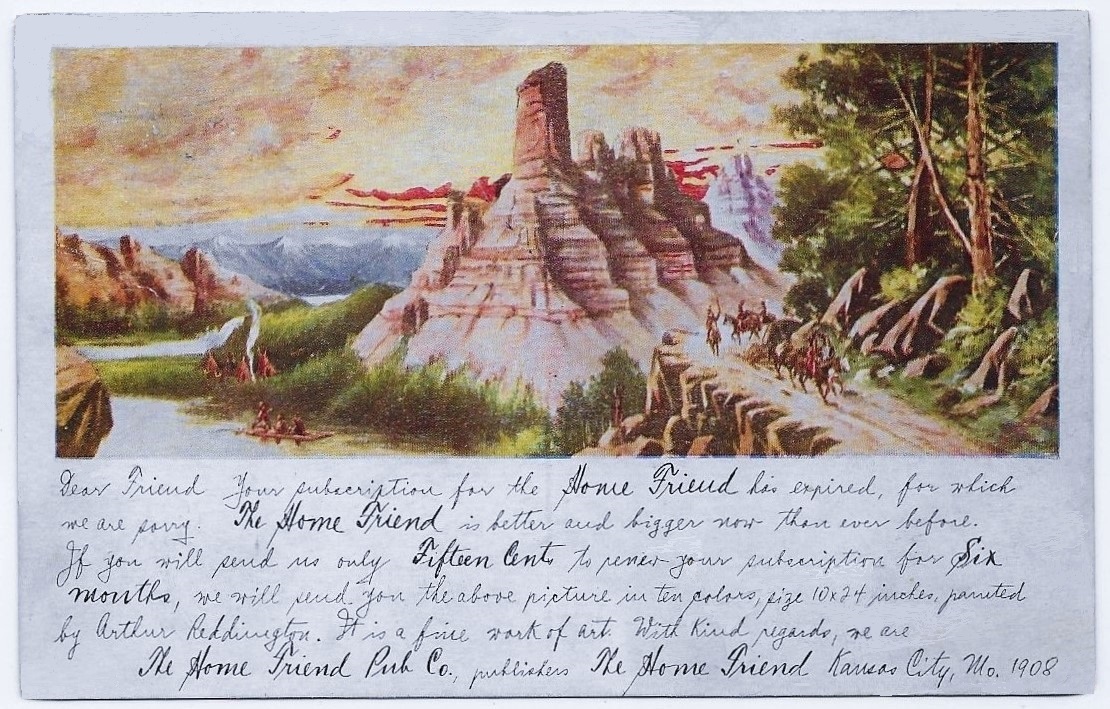 Dear Friend Your subscription for the Home Friend has expired, for which
we are sorry. The Home Friend is better and bigger now than ever before.
If you will send us only Fifteen Cents to renew your subscription for Six
months, we will send you the above picture in ten colors, size 10x24 inches, painted
by Arthur Reddington. It is a fine work of art. With kind regards, we are
The Home Friend Pub Co., publishers The Home Friend Kansas City, Mo. 1908